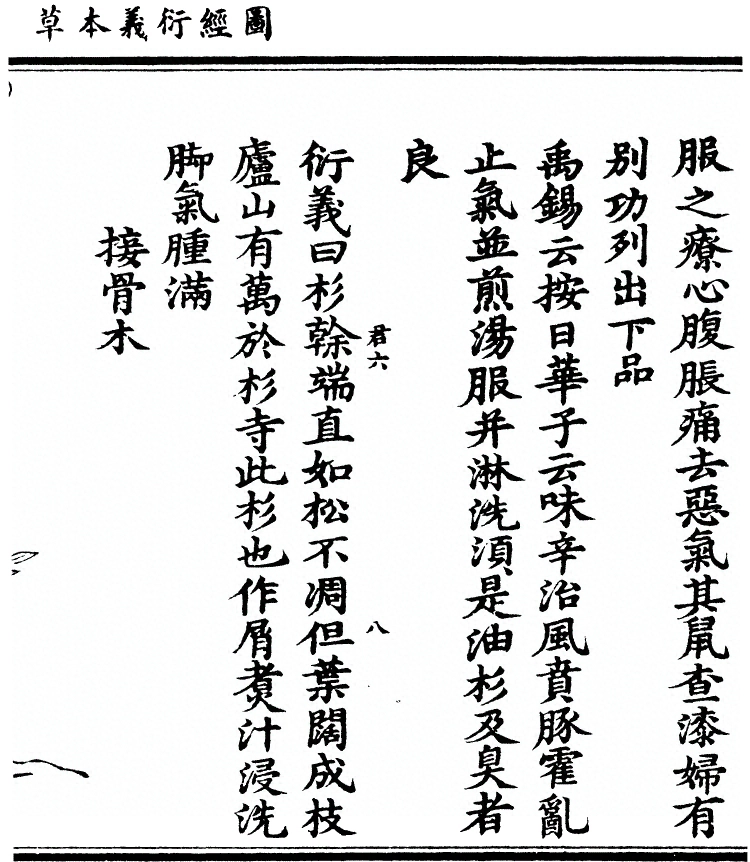 圖經衍義本草
服之療心腹脹痛去惡氣其鼠查漆婦有
別功列出下品
禹錫云按日華子云味辛治風賁豚霍亂
止氣並煎湯服并淋洗湏是油杉及臭者
良
君六 八
衍義曰杉榦端直如松不凋但葉闊成枝
廬山有萬於杉寺此杉也作屑煑汁浸洗
脚氣腫滿
接骨木